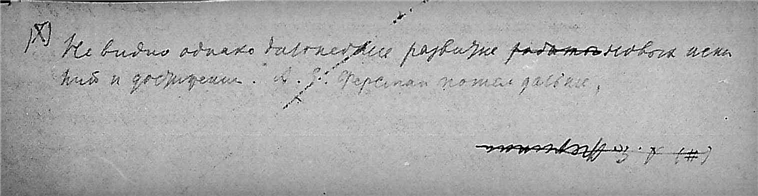 (X) Не видно однако дальнейшие развитие ~~работы~~ новых иска
ний и достижении. А. Е. Ферсман пошел дальше.
(#) А. Е. Ферсман